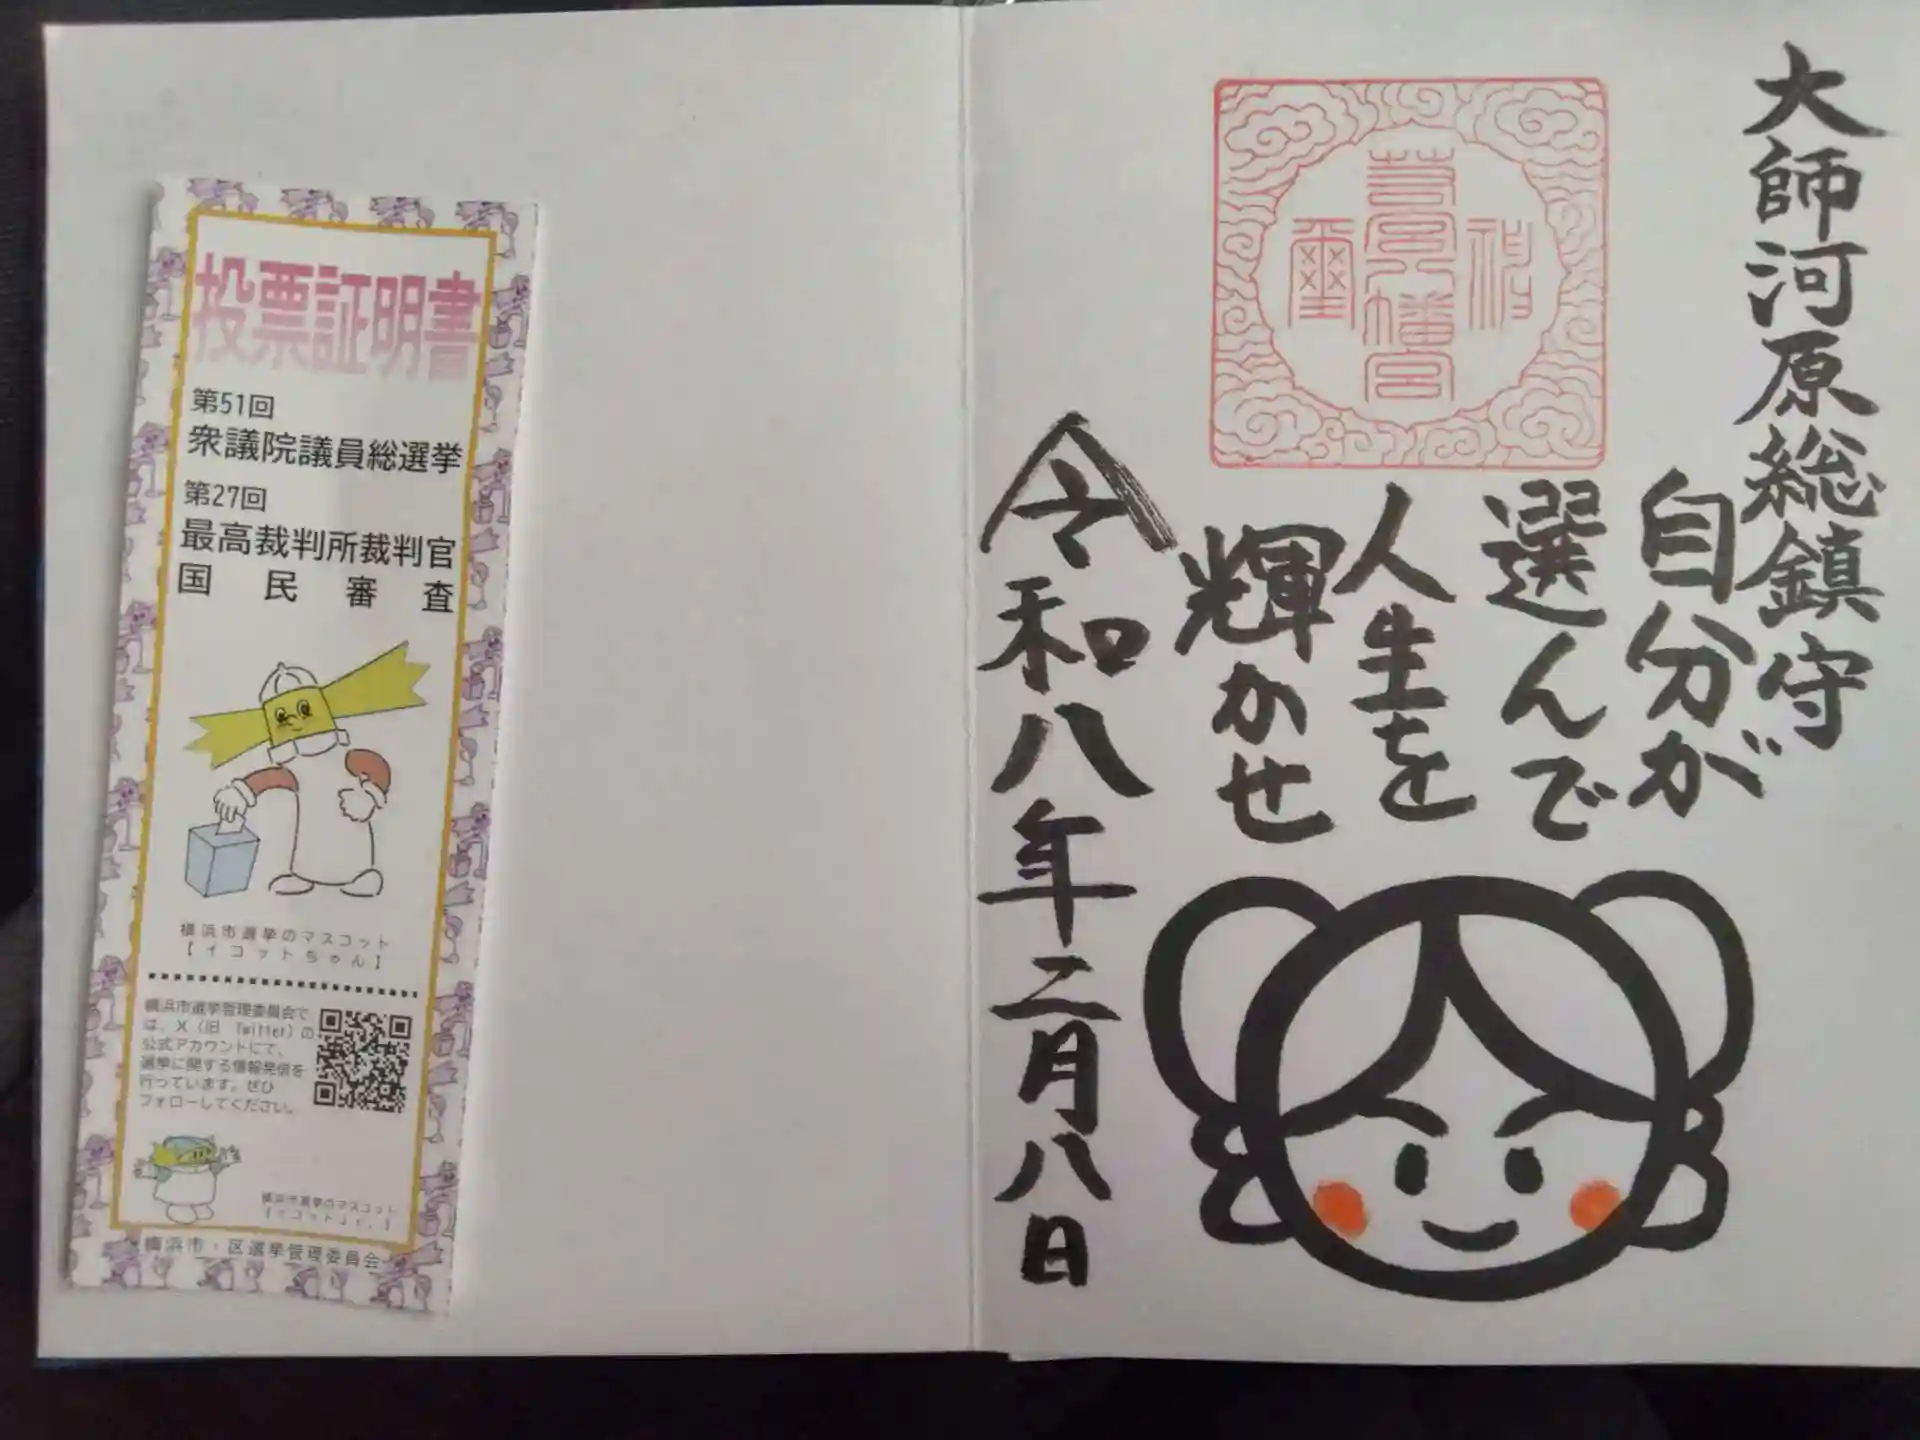 投票証明書
第51回
衆議院議員総選挙
第27回
最高裁判所裁判官
国民審査
横浜市選挙のマスコット
【イコットちゃん】
横浜市選挙管理委員会で
は、X（旧 Twitter）の
公式アカウントにて、
選挙に関する情報発信を
行っています。ぜひ
フォローしてください。
横浜市選挙のマスコット
【イコットJr.】
横浜市・区選挙管理委員会
大師河原総鎮守
自分が
選んで
人生を
輝かせ
令和八年二月八日